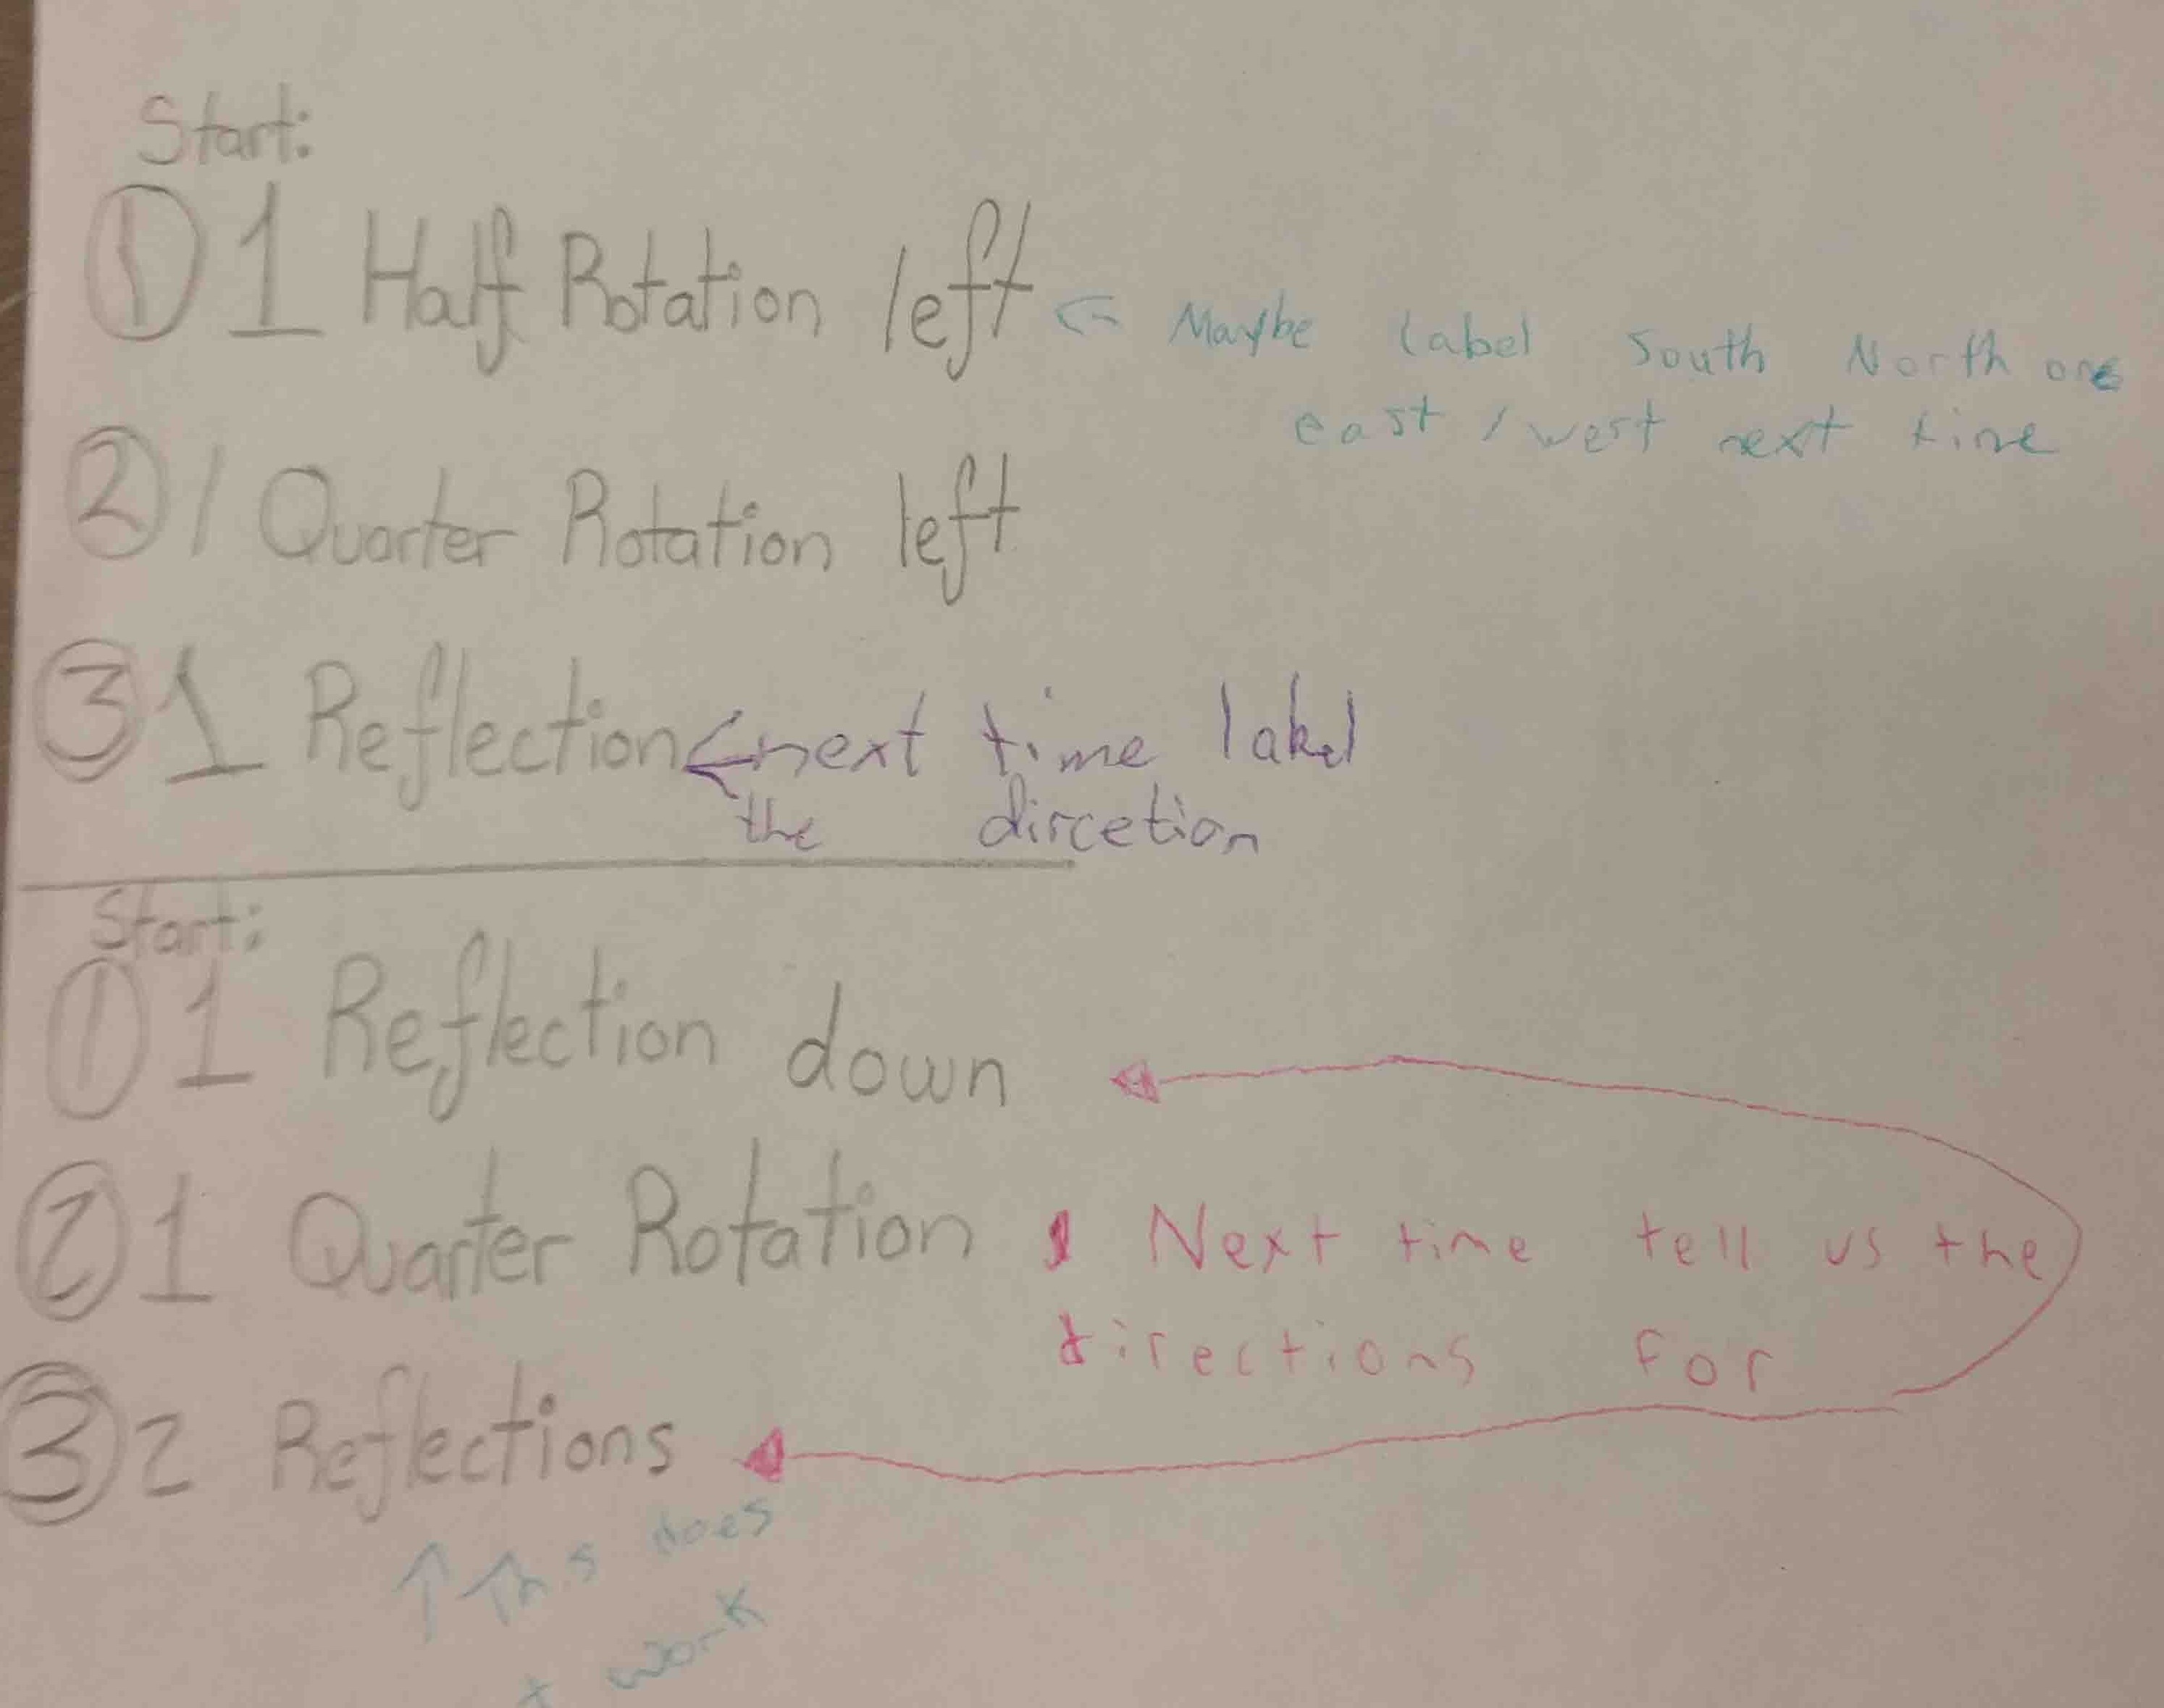 Start:
① 1 Half Rotation left ← Maybe label South North or
east / west next time
② 1 Quarter Rotation left
③ 1 Reflection ← next time label
the dircetion
Start:
① 1 Reflection down
② 1 Quarter Rotation Next time tell us the
directions for
③ 2 Reflections
↑ This does
work